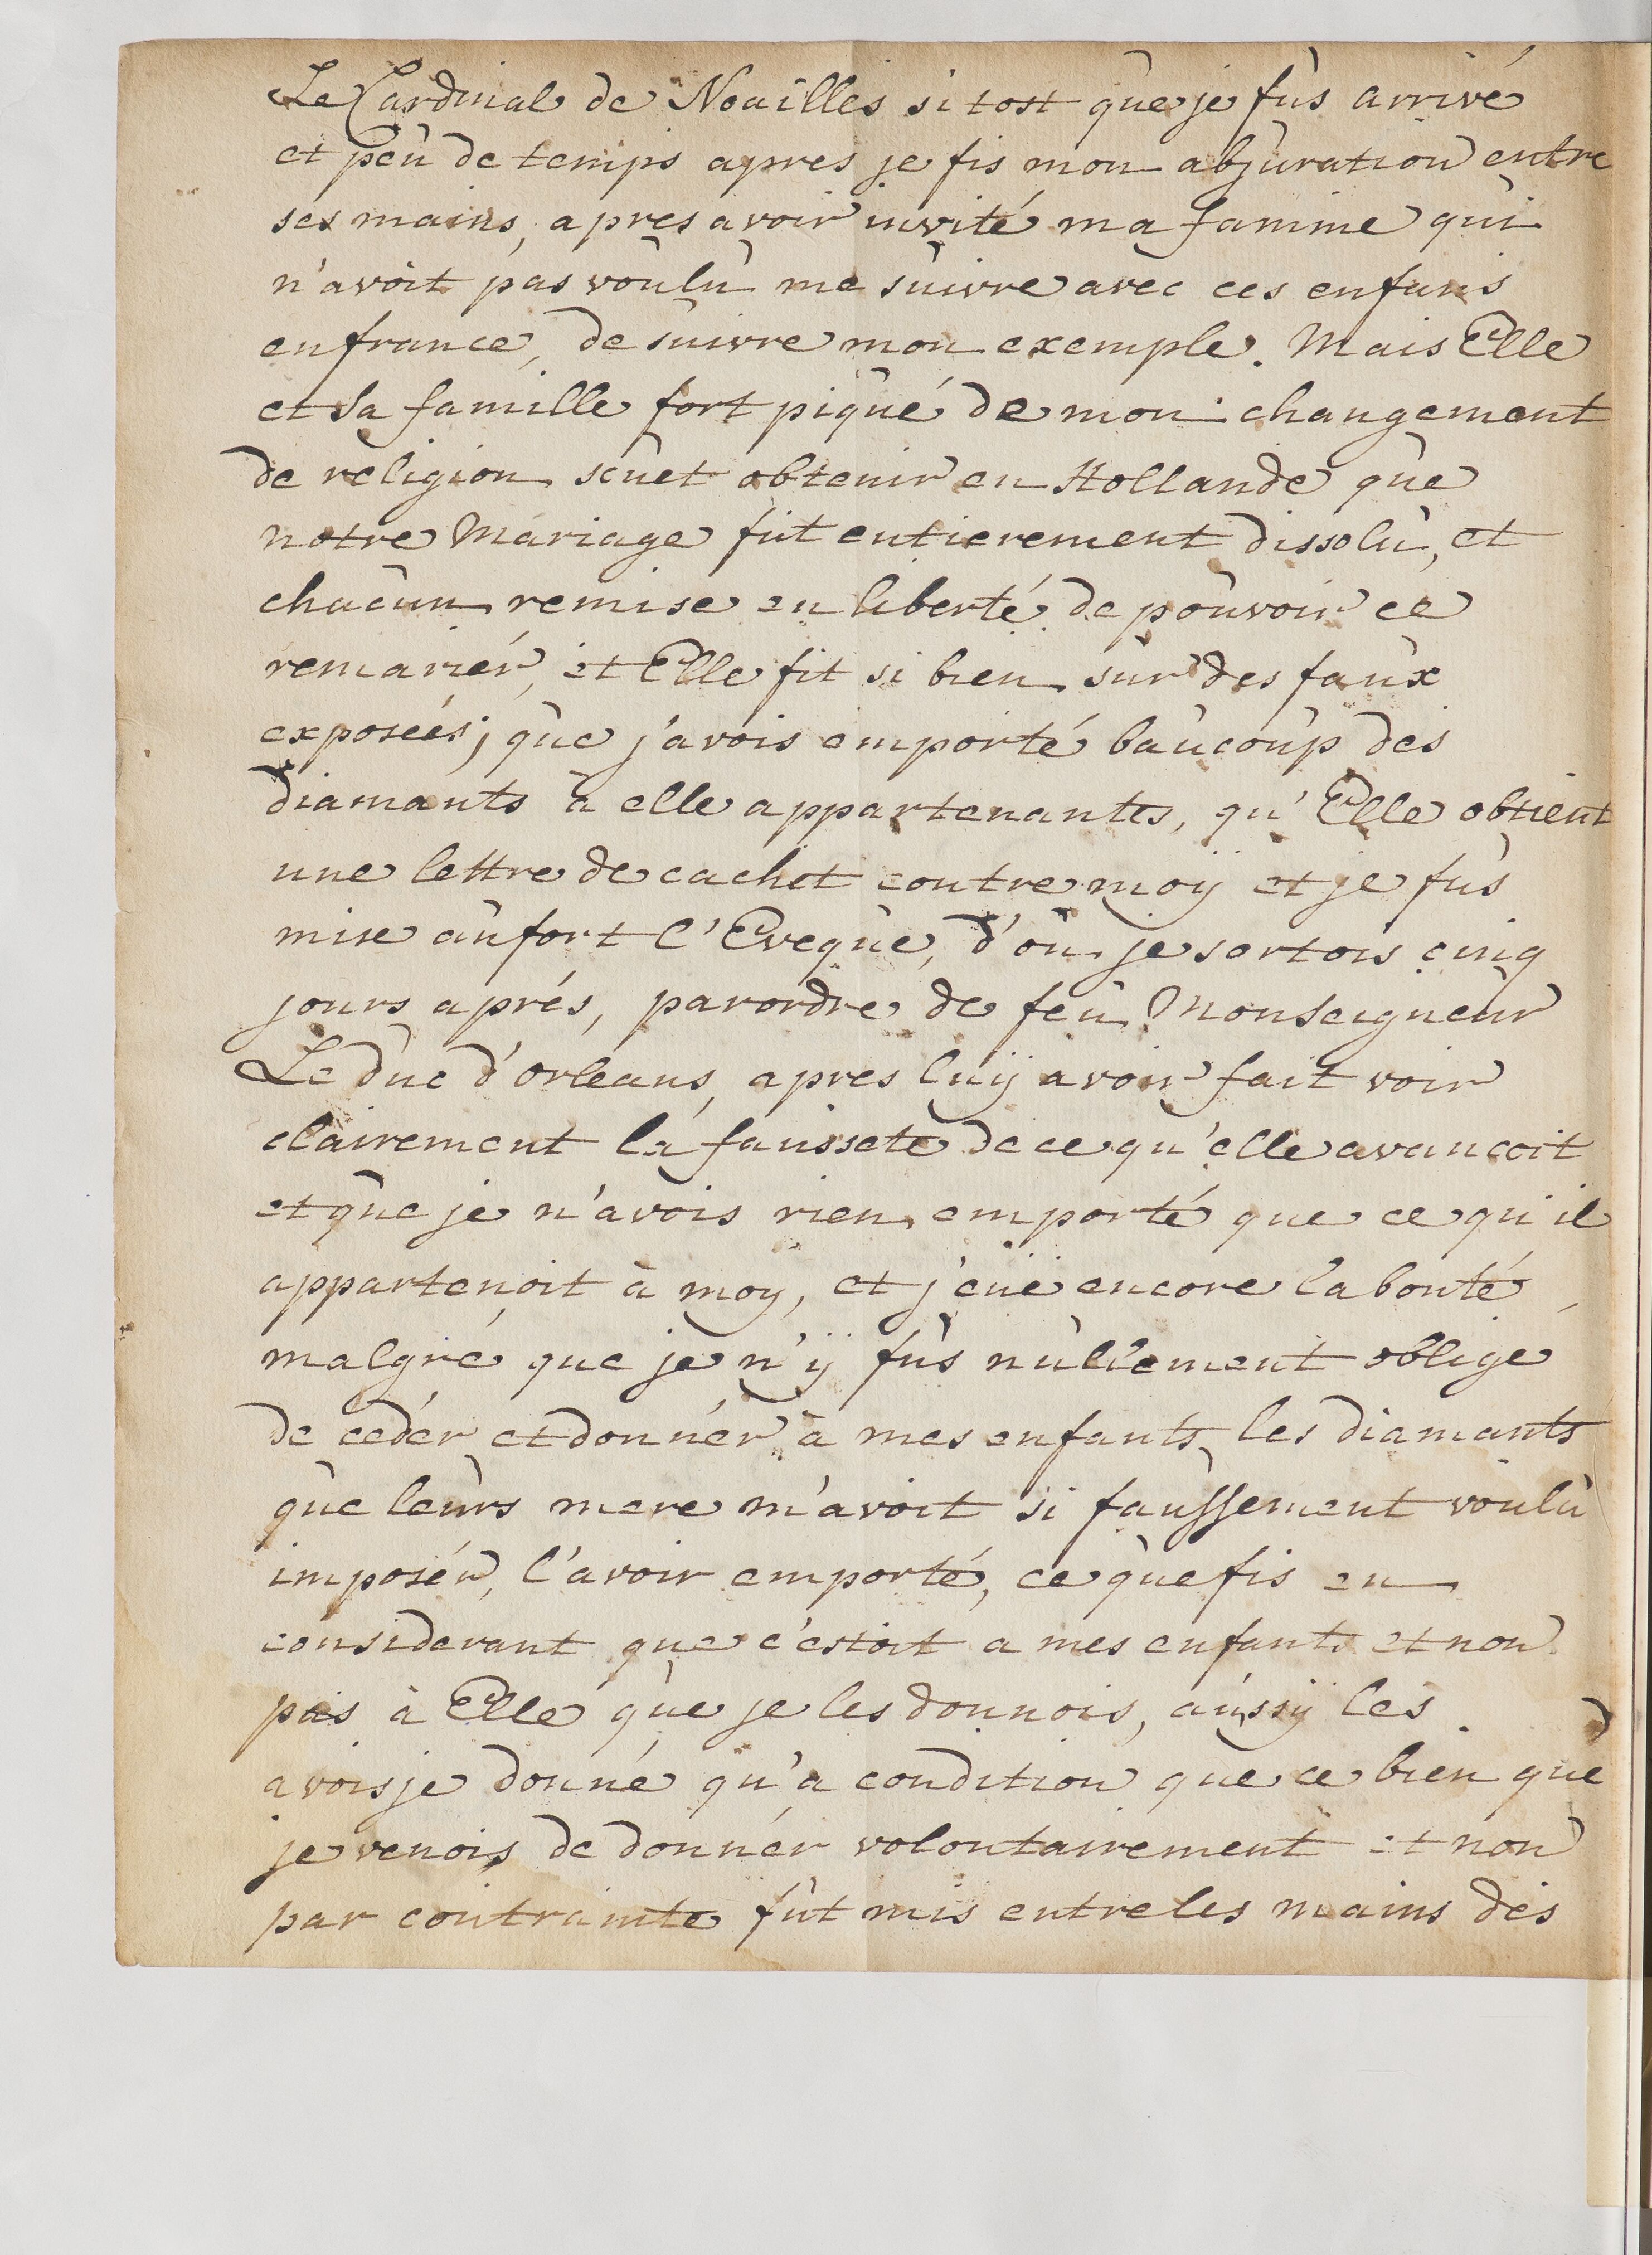 Le Cardinal de Noailles si tost que je fus arrivé
et peu de temps apres je fis mon abjuration entre
ses mains, apres avoir invité ma famme qui
n'avoit pas voulu me suivre avec ces enfans
en france, de suivre mon exemple. Mais Elle
et sa famille fort piqué de mon changement
de religion sçuet obtenir en Hollande que
notre Mariage fut entierement dissolu, et
chacun remise en liberté de pouvoir ce
remariér, et Elle fit si bien sur des faux
exposeés; que j'avois emporté baucoup des
diamants à elle appartenants, qu'Elle obtient
une lettre de cachet contre moÿ et je fus
mise au fort l'Eveque, d'ou je sortois cinq
jours aprés, par ordre de feu Monseigneur
Le duc d'orleans, apres luÿ avoir fait voir
clairement la faussete de ce qu'elle avancoit
et que je n'avois rien emporté que ce qu'il
appartenoit à moy, et j'eüe encore la bonté,
malgré que je n'ÿ fus nullement oblige
de cedér et donnér à mes enfants, les diamants
que leurs mere m'avoit si faussement voulu
imposér, l'avoir emporté, ce que fis en
considerant que c'estoit a mes enfants et non
pas à Elle que je les donnois, aussÿ les
avois je donné qu'a condition que ce bien que
je venois de donnér volontairement et non
par contrainte fut mis entre les mains des